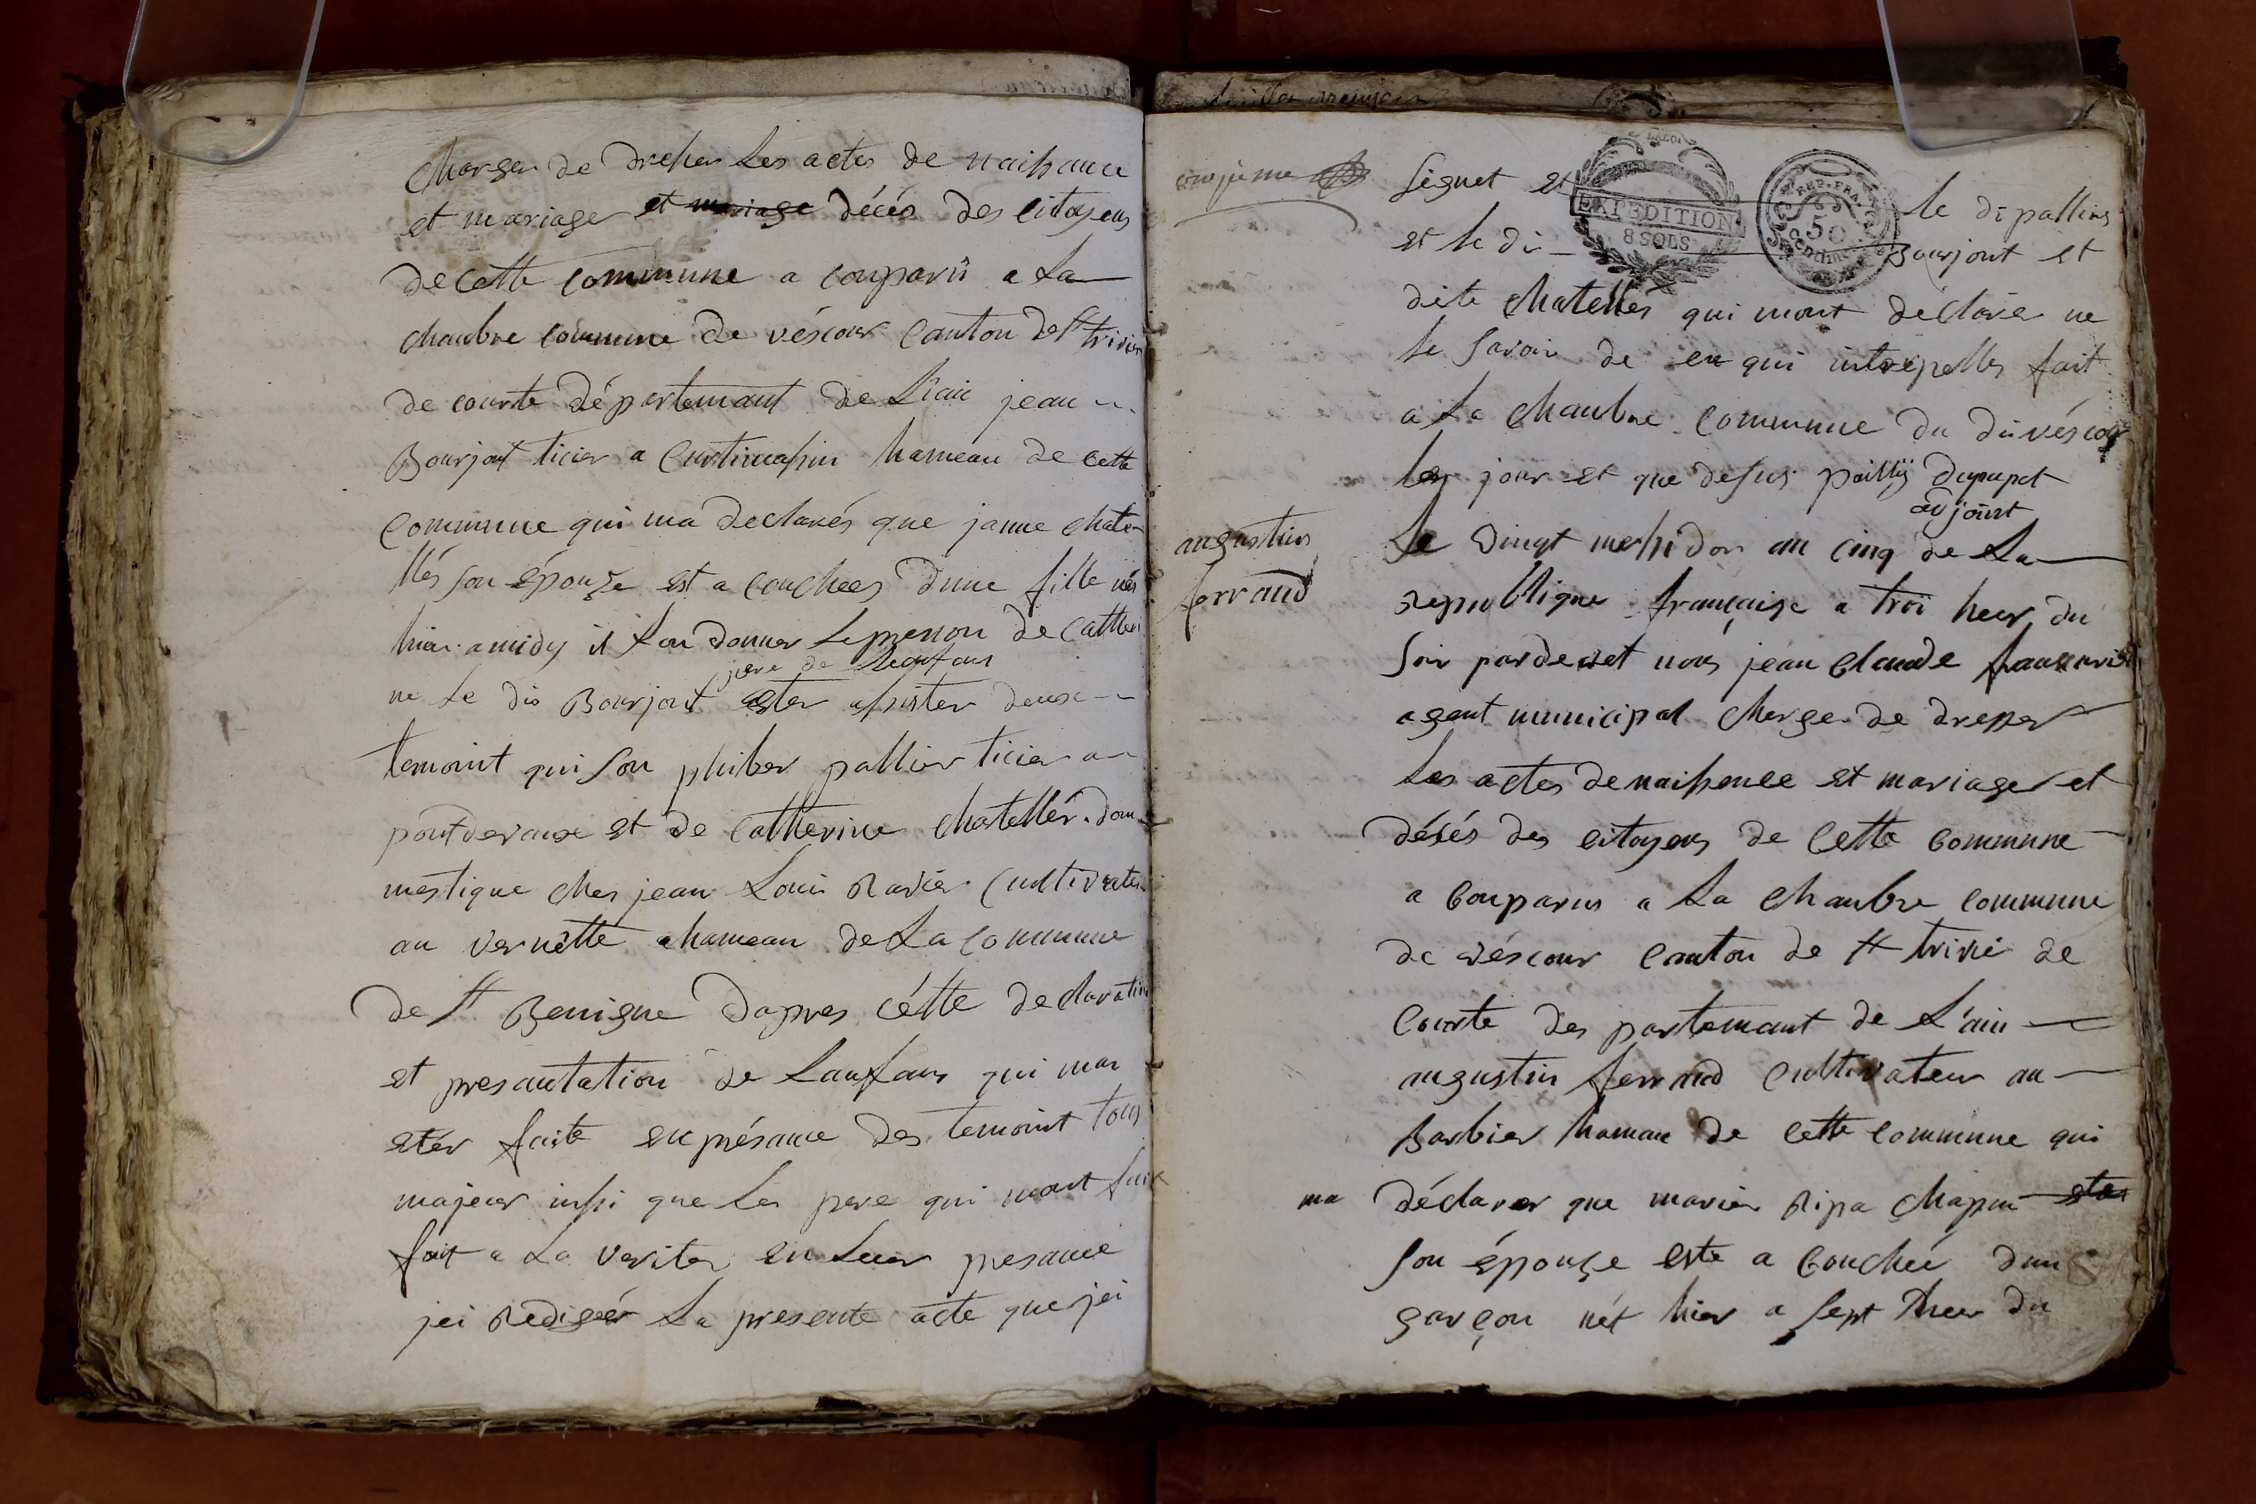 charger de dresser Les actes de naissance
et mariage et mariage décés des citoyens
de cette commune a conparû a La
chanbre commune de véscour canton de st trivier
de courte départemant de L'ain jean
Bourjont ticier a Curtimassin hameau de cette
commune qui ma declarés que janne chate
llés son épouze est a couchees d'une fille née
hier a midy il lon donner Le prenon de Catheri
pere de Leanfans
ne Le dis Bourjont ester assister deux
temoint qui son philber pallier ticier a
pontdevaux et de catherine chatellér dom
mestique ches jean Louis Ravier Cultivateur
au vernètte ahameau de La commune
de st Benigne d'apres cétte declaration
et presantation de Lanfans qui man
etér faite en présance des temoint tous
majeur inssi que les pere qui mont
fait a La veriter en Leur presance
jei Redigér La presente acte que jei
conjume
signet et le di pallier
et le di Bourjont et
EXPEDITION
8 SOLS
REP. FRA.
50
CENTIMES
dite chatellés qui mont déclarer ne
le savoir de en qui intrépelles fait
a La chanbre commune du di véscour
les jour et que desus Paillij Dupupet
adjoint
augustin
ferrand
Le vingt messidor an cinq de La
republique française a troi heur du
soir pardevet nous jean claude
agent municipal charger de dresser
Les actes de naissence et mariager et
désés des citoyens de Cette commune
a conparus a La chanbre commune
de véscour canton de st trivié de
courte des partemant de L'ain
augustin ferrand cultivateur au
Barbier hamau de cette commune qui
ma déclarer que marie Ripa chapui ester
son épouze este a couchée dun
garçon nét hier a sept heur du